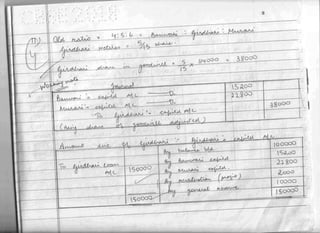 8
11) Old ratio = 4:5:6 = Banwari : Girdhari : Murari
4
Girdhari retires = 5/15 share
Girdhari share in goodwill = 5/15 × = 38000
Working note
Journal
Banwari's capital A/c Dr. 15200
Murari's capital A/c Dr. 22800
To Girdhari's capital A/c 38000
(Being share of goodwill adjusted)
Amount due to Girdhari's Girdhari's capital A/c
By balance b/d 100000
To Girdhari loan A/c 150000
By Banwari capital 15200
By Murari capital 22800
By revaluation (profit) 2000
By general reserve 10000
150000 150000